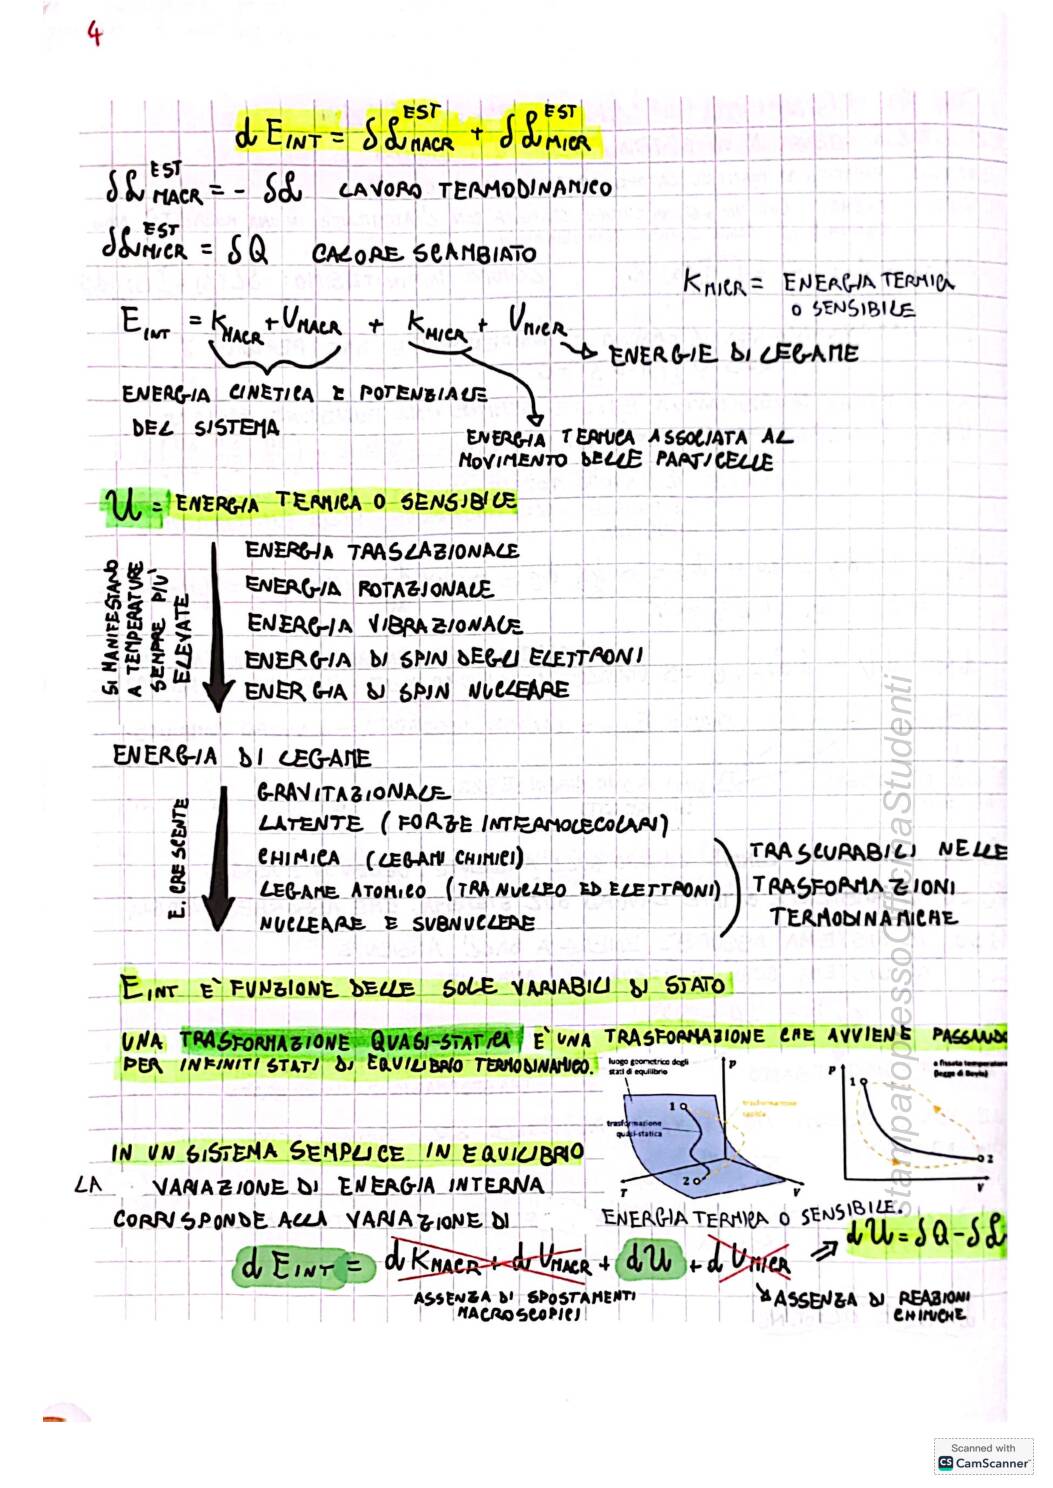 4
d E_INT = δL_MACR^EST + δL_MICR^EST
δL_MACR^EST = - δL LAVORO TERMODINAMICO
δL_MICR^EST = δQ CALORE SCAMBIATO
K_MICR = ENERGIA TERMICA
O SENSIBILE
E_INT = K_MACR + U_MACR + K_MICR + U_MICR
ENERGIE DI LEGAME
ENERGIA CINETICA E POTENZIALE
DEL SISTEMA
ENERGIA TERMICA ASSOCIATA AL
MOVIMENTO DELLE PARTICELLE
U = ENERGIA TERMICA O SENSIBILE
SI MANIFESTANO
A TEMPERATURE
SEMPRE PIU'
ELEVATE
ENERGIA TRASLAZIONALE
ENERGIA ROTAZIONALE
ENERGIA VIBRAZIONALE
ENERGIA DI SPIN DEGLI ELETTRONI
ENERGIA DI SPIN NUCLEARE
ENERGIA DI LEGAME
E. CRESCENTE
GRAVITAZIONALE
LATENTE (FORZE INTERMOLECOLARI)
CHIMICA (LEGAMI CHIMICI)
LEGAME ATOMICO (TRA NUCLEO ED ELETTRONI)
NUCLEARE E SUBNUCLERE
TRASCURABILI NELLE
TRASFORMAZIONI
TERMODINAMICHE
E_INT E' FUNZIONE DELLE SOLE VARIABILI DI STATO
UNA TRASFORMAZIONE QUASI-STATICA E' UNA TRASFORMAZIONE CHE AVVIENE PASSANDO
PER INFINITI STATI DI EQUILIBRIO TERMODINAMICO.
luogo geometrico degli
stati di equilibrio
P
trasformazione
rapida
1
trasformazione
quasi-statica
2
T
V
P
a fissata temperatura
(legge di Boyle)
1
2
V
IN UN SISTEMA SEMPLICE IN EQUILIBRIO
LA VARIAZIONE DI ENERGIA INTERNA
CORRISPONDE ALLA VARIAZIONE DI ENERGIA TERMICA O SENSIBILE.
d E_INT = d K_MACR + d U_MACR + d U + d U_MICR ⇒ dU = δQ - δL
ASSENZA DI SPOSTAMENTI
MACROSCOPICI
ASSENZA DI REAZIONI
CHIMICHE
stampatopessoOfficinaStudenti
Scanned with
CS CamScanner